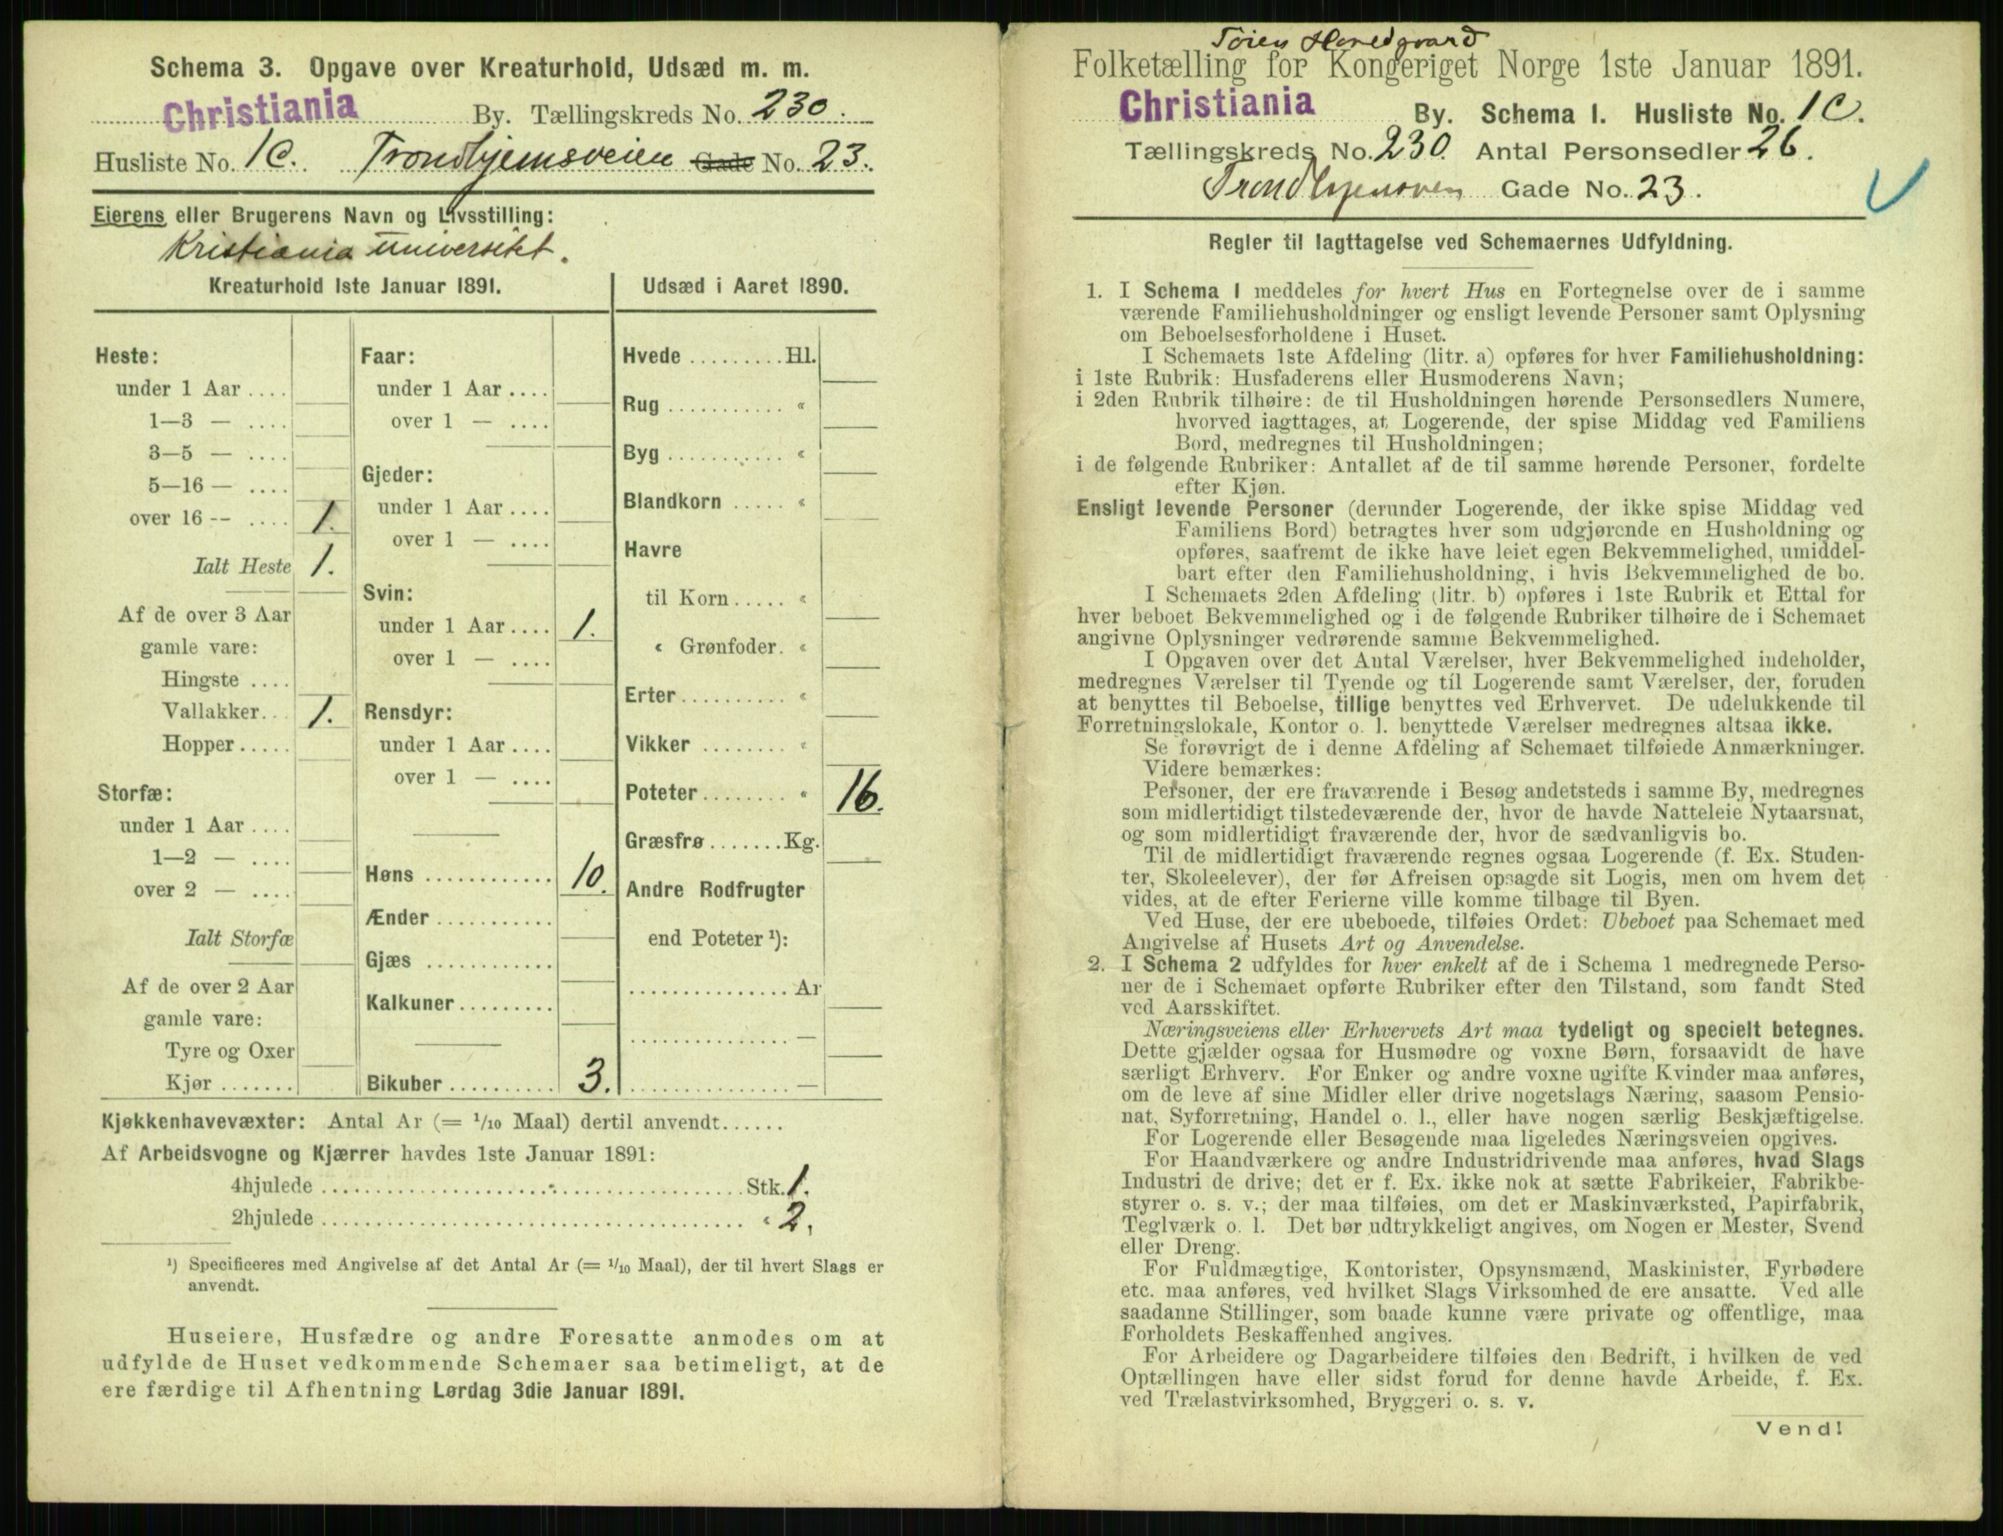 Schema 3. Opgave over Kreaturhold, Udsæd m. m.
Christiania By. Tællingskreds No. 230.
Husliste No. 1C. Trondhjemsveien Gade No. 23.
Eierens eller Brugerens Navn og Livsstilling:
Kristiania universitet.
Kreaturhold 1ste Januar 1891.
Heste:
under 1 Aar ....
1—3 — ....
3—5 — ....
5—16 — ....
over 16 -- .... 1.
Ialt Heste 1.
Af de over 3 Aar
gamle vare:
Hingste ....
Vallakker.. 1.
Hopper.....
Storfæ:
under 1 Aar ....
1—2 — ....
over 2 — ....
Ialt Storfæ
Af de over 2 Aar
gamle vare:
Tyre og Oxer
Kjør .......
Faar:
under 1 Aar ....
over 1 — ....
Gjeder:
under 1 Aar ....
over 1 — ....
Svin:
under 1 Aar .... 1.
over 1 — ....
Rensdyr:
under 1 Aar ....
over 1 — ....
Høns ............ 10.
Ænder ...........
Gjæs ............
Kalkuner.........
Bikuber .......... 3.
Udsæd i Aaret 1890.
Hvede .........Hl.
Rug ........... «
Byg ........... «
Blandkorn ..... «
Havre
til Korn..... «
« Grønfoder. «
Erter.......... «
Vikker ........ «
Poteter........ « 16.
Græsfrø .......Kg.
Andre Rodfrugter
end Poteter ¹):
...............Ar
............... —
............... —
Kjøkkenhavevæxter: Antal Ar (= 1/10 Maal) dertil anvendt......
Af Arbeidsvogne og Kjærrer havdes 1ste Januar 1891:
4hjulede ........................................Stk. 1.
2hjulede ........................................ « 2.
¹) Specificeres med Angivelse af det Antal Ar (= 1/10 Maal), der til hvert Slags er
anvendt.
Huseiere, Husfædre og andre Foresatte anmodes om at
udfylde de Huset vedkommende Schemaer saa betimeligt, at de
ere færdige til Afhentning Lørdag 3die Januar 1891.
Tøien Hovedgaard
Folketælling for Kongeriget Norge 1ste Januar 1891.
Christiania By. Schema I. Husliste No. 1C.
Tællingskreds No. 230. Antal Personsedler 26.
Gade No. 23.
Regler til Iagttagelse ved Schemaernes Udfyldning.
1. I Schema I meddeles for hvert Hus en Fortegnelse over de i samme
værende Familiehusholdninger og ensligt levende Personer samt Oplysning
om Beboelsesforholdene i Huset.
I Schemaets 1ste Afdeling (litr. a) opføres for hver Familiehusholdning:
i 1ste Rubrik: Husfaderens eller Husmoderens Navn;
i 2den Rubrik tilhøire: de til Husholdningen hørende Personsedlers Numere,
hvorved iagttages, at Logerende, der spise Middag ved Familiens
Bord, medregnes til Husholdningen;
i de følgende Rubriker: Antallet af de til samme hørende Personer, fordelte
efter Kjøn.
Ensligt levende Personer (derunder Logerende, der ikke spise Middag ved
Familiens Bord) betragtes hver som udgjørende en Husholdning og
opføres, saafremt de ikke have leiet egen Bekvemmelighed, umiddel-
bart efter den Familiehusholdning, i hvis Bekvemmelighed de bo.
I Schemaets 2den Afdeling (litr. b) opføres i 1ste Rubrik et Ettal for
hver beboet Bekvemmelighed og i de følgende Rubriker tilhøire de i Schemaet
angivne Oplysninger vedrørende samme Bekvemmelighed.
I Opgaven over det Antal Værelser, hver Bekvemmelighed indeholder,
medregnes Værelser til Tyende og til Logerende samt Værelser, der, foruden
at benyttes til Beboelse, tillige benyttes ved Erhvervet. De udelukkende til
Forretningslokale, Kontor o. l. benyttede Værelser medregnes altsaa ikke.
Se forøvrigt de i denne Afdeling af Schemaet tilføiede Anmærkninger.
Videre bemærkes:
Personer, der ere fraværende i Besøg andetsteds i samme By, medregnes
som midlertidigt tilstedeværende der, hvor de havde Natteleie Nytaarsnat,
og som midlertidigt fraværende der, hvor de sædvanligvis bo.
Til de midlertidigt fraværende regnes ogsaa Logerende (f. Ex. Studen-
ter, Skoleelever), der før Afreisen opsagde sit Logis, men om hvem det
vides, at de efter Ferierne ville komme tilbage til Byen.
Ved Huse, der ere ubeboede, tilføies Ordet: Ubeboet paa Schemaet med
Angivelse af Husets Art og Anvendelse.
2. I Schema 2 udfyldes for hver enkelt af de i Schema 1 medregnede Perso-
ner de i Schemaet opførte Rubriker efter den Tilstand, som fandt Sted
ved Aarsskiftet.
Næringsveiens eller Erhvervets Art maa tydeligt og specielt betegnes.
Dette gjælder ogsaa for Husmødre og voxne Børn, forsaavidt de have
særligt Erhverv. For Enker og andre voxne ugifte Kvinder maa anføres,
om de leve af sine Midler eller drive nogetslags Næring, saasom Pensio-
nat, Syforretning, Handel o. l., eller have nogen særlig Beskjæftigelse.
For Logerende eller Besøgende maa ligeledes Næringsveien opgives.
For Haandværkere og andre Industridrivende maa anføres, hvad Slags
Industri de drive; det er f. Ex. ikke nok at sætte Fabrikeier, Fabrikbe-
styrer o. s. v.; der maa tilføies, om det er Maskinværksted, Papirfabrik,
Teglværk o. l. Det bør udtrykkeligt angives, om Nogen er Mester, Svend
eller Dreng.
For Fuldmægtige, Kontorister, Opsynsmænd, Maskinister, Fyrbødere
etc. maa anføres, ved hvilket Slags Virksomhed de ere ansatte. Ved alle
saadanne Stillinger, som baade kunne være private og offentlige, maa
Forholdets Beskaffenhed angives.
For Arbeidere og Dagarbeidere tilføies den Bedrift, i hvilken de ved
Optællingen have eller sidst forud for denne havde Arbeide, f. Ex.
ved Trælastvirksomhed, Bryggeri o. s. v.
Vend!